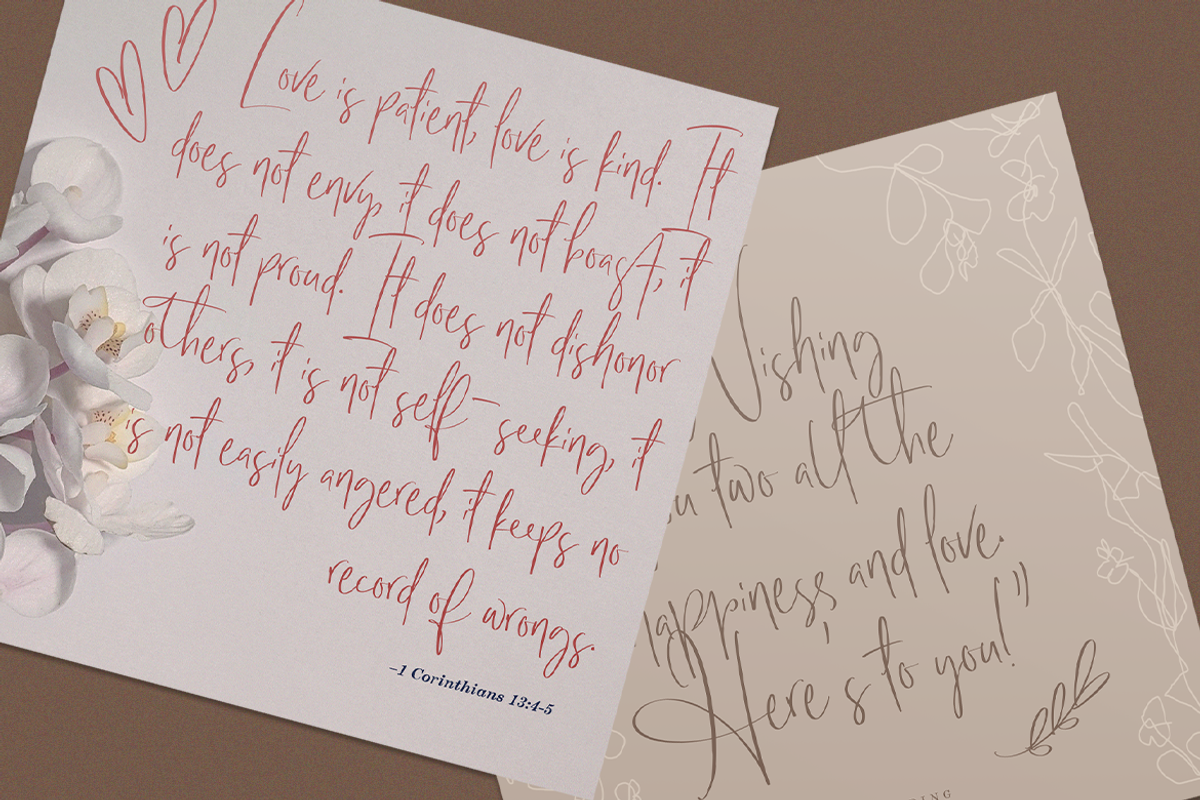 Love is patient, love is kind. It
does not envy, it does not boast, it
is not proud. It does not dishonor
others, it is not self-seeking, it
is not easily angered, it keeps no
record of wrongs.
–1 Corinthians 13:4-5
Wishing
two all the
happiness and love.
Here's to you!"